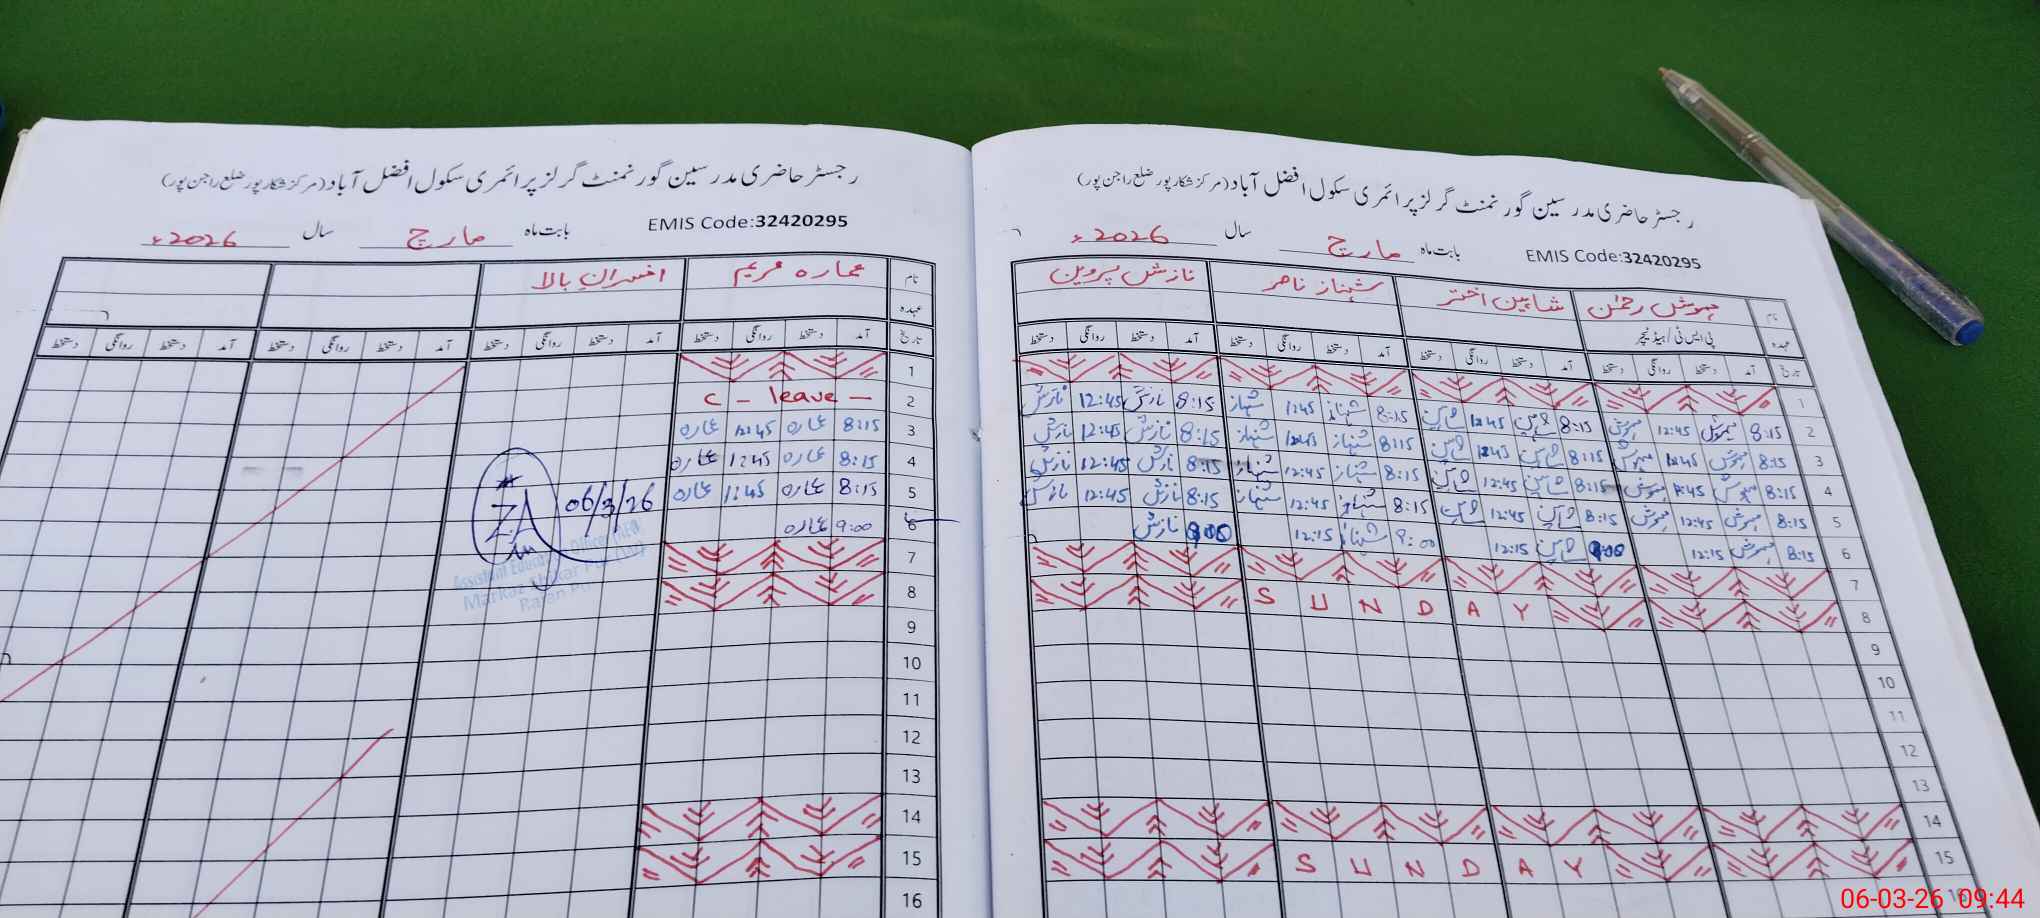 رجسٹر حاضری مدرسین گورنمنٹ گرلز پرائمری سکول افضل آباد (مرکز شکارپور ضلع راجن پور)
EMIS Code:32420295 بابت ماہ مارچ سال 2026ء
نام مہوش رحمٰن شاہین اختر شہناز ناصر نازش پروین
عہدہ پی ایس ٹی / ہیڈ ٹیچر
تاریخ آمد دستخط روانگی دستخط آمد دستخط روانگی دستخط آمد دستخط روانگی دستخط آمد دستخط روانگی دستخط
1
2 8:15 مہوش 12:45 مہوش 8:15 شاہین 12:45 شاہین 8:15 شہناز 1:45 شہناز 8:15 نازش 12:45 نازش
3 8:15 مہوش 12:45 مہوش 8:15 شاہین 12:45 شاہین 8:15 شہناز 12:45 شہناز 8:15 نازش 12:45 نازش
4 8:15 مہوش 12:45 مہوش 8:15 شاہین 12:45 شاہین 8:15 شہناز 12:45 شہناز 8:15 نازش 12:45 نازش
5 8:15 مہوش 12:45 مہوش 8:15 شاہین 12:45 شاہین 8:15 شہناز 12:45 شہناز 8:15 نازش 12:45 نازش
6 8:15 مہوش 12:15 9:00 شاہین 12:15 9:00 شہناز 12:15 9:00 نازش
7
8 SUNDAY
9
10
11
12
13
14
15 SUNDAY
رجسٹر حاضری مدرسین گورنمنٹ گرلز پرائمری سکول افضل آباد (مرکز شکارپور ضلع راجن پور)
EMIS Code:32420295 بابت ماہ مارچ سال 2026ء
نام عمارہ مریم افسران بالا
عہدہ
تاریخ آمد دستخط روانگی دستخط آمد دستخط روانگی دستخط آمد دستخط روانگی دستخط آمد دستخط روانگی دستخط
1
2 C - leave -
3 8:15 عمارہ 12:45 عمارہ
4 8:15 عمارہ 1:45 عمارہ
5 8:15 عمارہ 1:45 عمارہ
6 9:00 عمارہ
06/3/26
ZA
Assistant Education Officer
Markaz Shikar Pur (W)
Rajan Pur
7
8
9
10
11
12
13
14
15
16
06-03-26 09:44